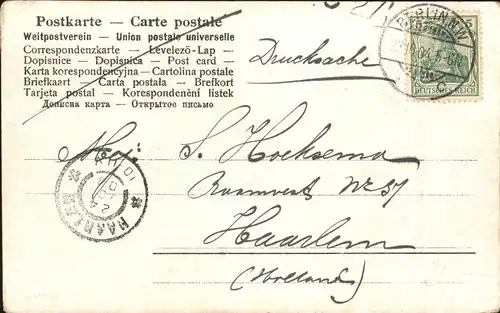 Postkarte - Carte postale
Weltpostverein - Union postale universelle
Correspondenzkarte - Levelező-Lap -
Dopisnice - Dopisnica - Post card -
Karta korespondencyjna - Cartolina postale
Briefkaart - Carta postala - Brefkort
Tarjeta postal - Korespondenční lístek
Дописна карта - Открытое письмо
Drucksache
BERLIN N.W.
DEUTSCHES REICH
S. Hoeksema
No 57
Haarlem
(Holland)
HAARLEM